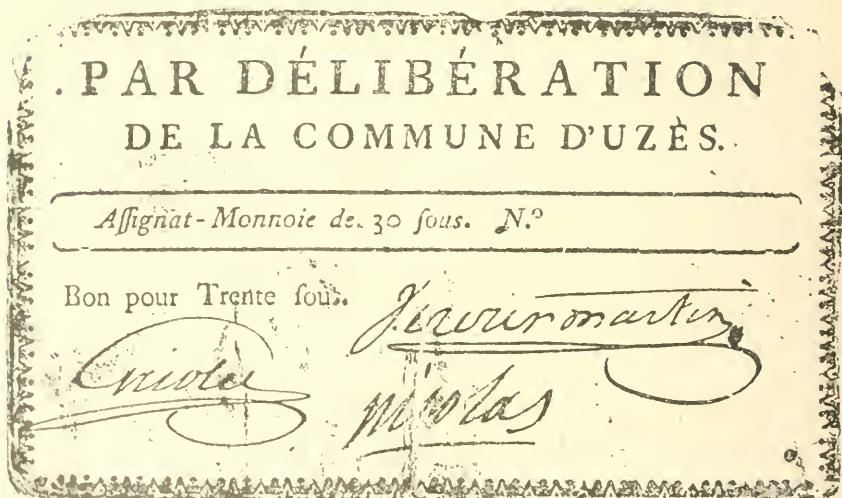 PAR DÉLIBÉRATION
DE LA COMMUNE D'UZÈS.
Aſſignat-Monnoie de 30 ſous. N.º
Bon pour Trente ſous.
nicolas